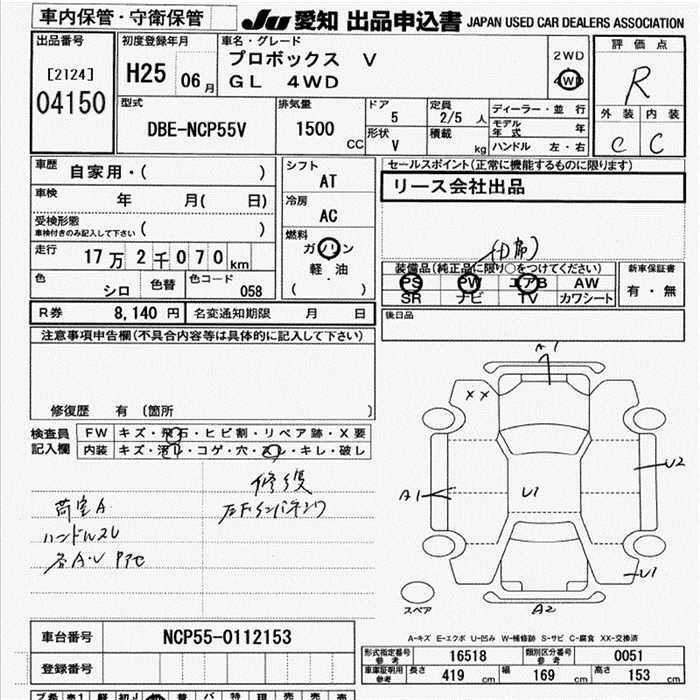 車内保管・守衛保管
JU 愛知 出品申込書 JAPAN USED CAR DEALERS ASSOCIATION
出品番号
[2124]
04150
初度登録年月
H25 06月
車名・グレード
プロボックス V
GL 4WD
2WD
4WD
評価点
R
外装 内装
C C
型式
DBE-NCP55V
排気量
1500 CC
ドア
5
形状
V
定員
2/5 人
積載
kg
ディーラー・並行
モデル年式 年
ハンドル 左・右
車歴 自家用・( )
車検 年 月( 日)
受検形態
車検付きのみ記入して下さい ( )
走行 17万2千070km
色 シロ 色替 色コード 058
R券 8,140円 名変通知期限 月 日
シフト
AT
冷房
AC
燃料
ガソリン
軽油
( )
セールスポイント(正常に機能するものに限ります)
リース会社出品
装備品(純正品に限り○をつけてください)
PS PW エアB AW
SR ナビ TV カワシート
新車保証書
有・無
後日品
注意事項申告欄(不具合内容等は具体的に記入して下さい)
修復歴 有 〔箇所 〕
検査員記入欄
FW キズ・飛石・ヒビ割・リペア跡・X要
内装 キズ・汚レ・コゲ・穴・スレ・キレ・破レ
荷室A
ハンドルスレ
修復
A1
XX
U2
A1
U1
U1
A2
スペア
A-キズ E-エクボ U-凹み W-補修跡 S-サビ C-腐食 XX-交換済
車台番号 NCP55-0112153
登録番号
形式指定番号 参考 16518 類別区分番号 参考 0051
車庫証明用 参考 長さ 419 cm 幅 169 cm 高さ 153 cm